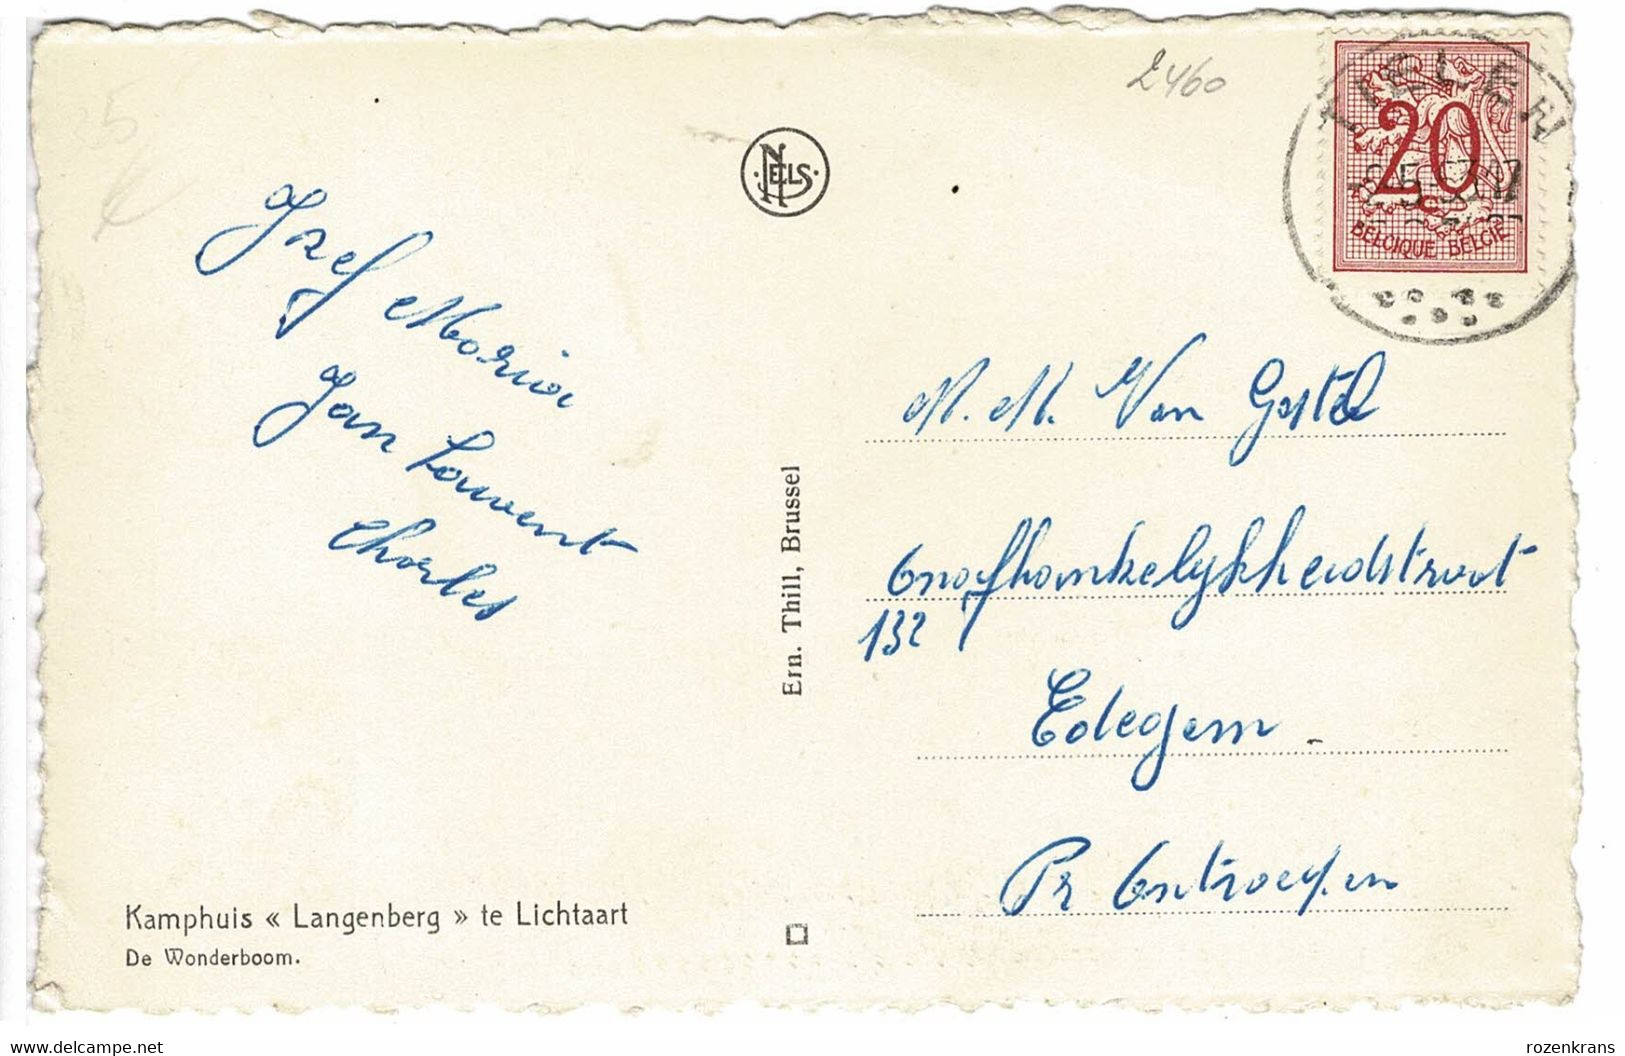 2460
TIELEN
20
-2-5-53-17
BELGIQUE-BELGIË
NELS
Jozef Maria
Jan Louwent
Charles
Ern. Thill, Brussel
M. M. Van Gastel
Onafhankelijkheidstraat
132
Edegem
Pr Antwerpen
Kamphuis « Langenberg » te Lichtaart
De Wonderboom.
www.delcampe.net
rozenkrans